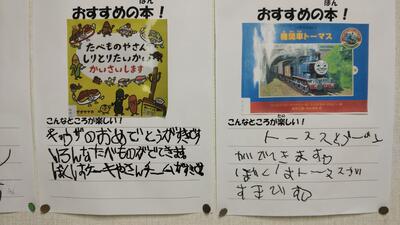 おすすめの本！
たべものやさん
しりとりたいかい
かいさいします
こんなところが楽しい！
いろんなたべものがでてきます
ぼくはケーキやさんチームがすきです
おすすめの本！
機関車トーマス
こんなところが楽しい！
がでてきます
ぼくはトーマスが
すきです